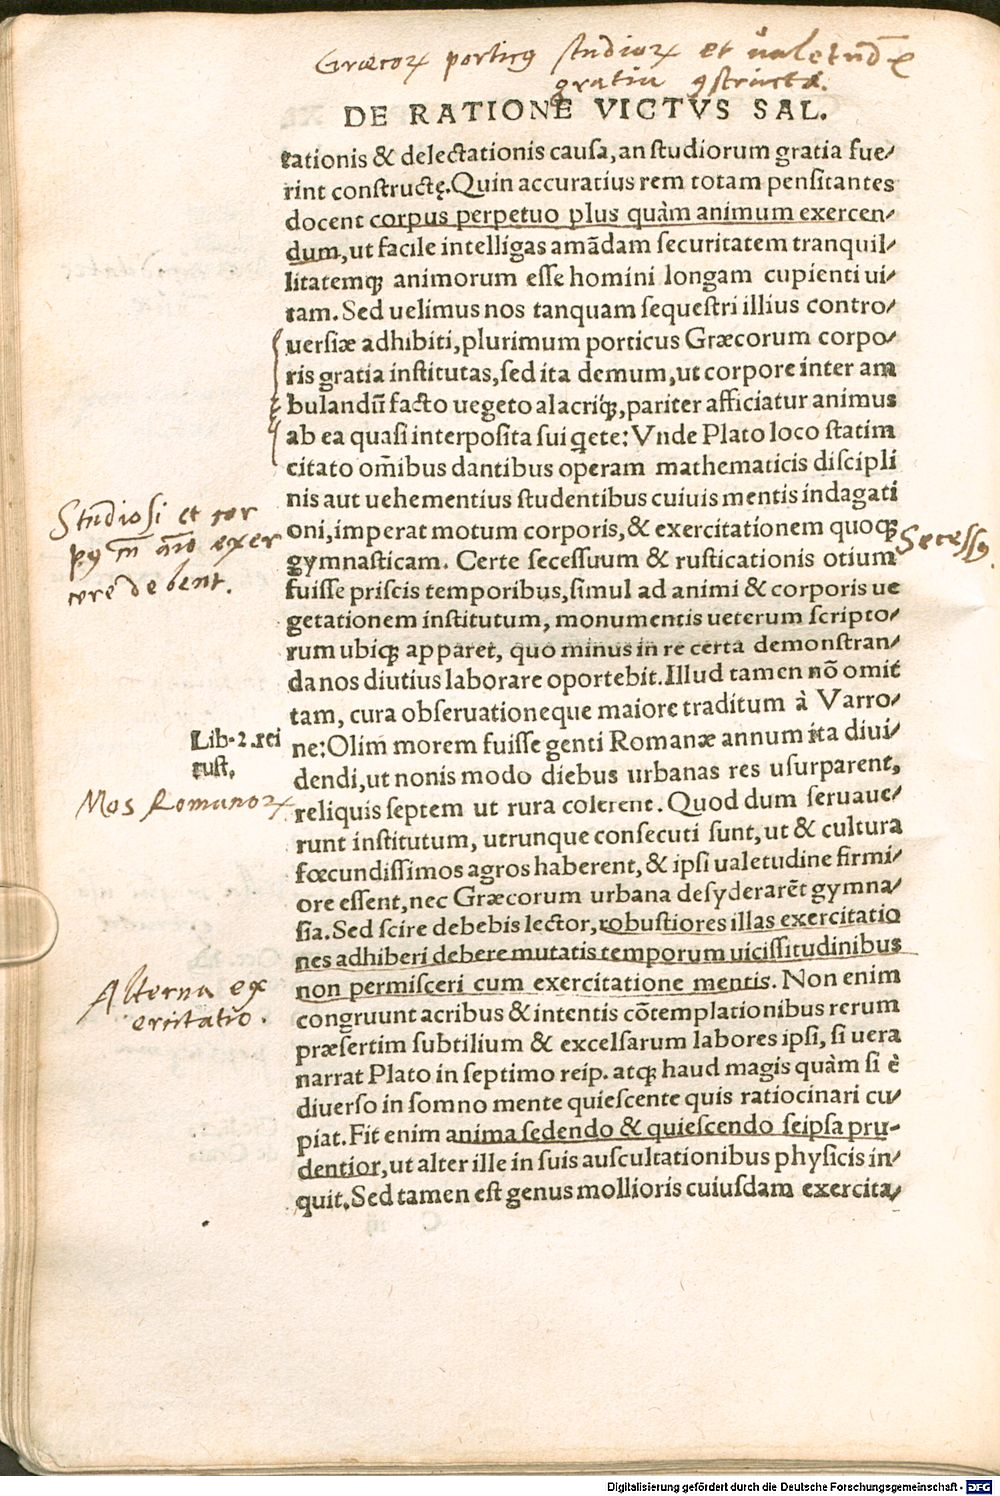 Græcoꝝ porticꝰ studioꝝ et ualetudīs
gratia ꝯstructa.
DE RATIONE VICTVS SAL.
tationis & delectationis causa, an studiorum gratia fue/
rint constructę. Quin accuratius rem totam pensitantes
docent corpus perpetuo plus quàm animum exercen/
dum, ut facile intelligas amādam securitatem tranquil/
litatemqꝫ animorum esse homini longam cupienti ui/
tam. Sed uelimus nos tanquam sequestri illius contro/
uersiæ adhibiti, plurimum porticus Græcorum corpo/
ris gratia institutas, sed ita demum, ut corpore inter am
bulandū facto uegeto alacriqꝫ, pariter afficiatur animus
ab ea quasi interposita sui qete: Vnde Plato loco statim
citato om̄ibus dantibus operam mathematicis discipli
nis aut uehementius studentibus cuiuis mentis indagati
oni, imperat motum corporis, & exercitationem quoqꝫ
gymnasticam. Certe secessuum & rusticationis otium
fuisse priscis temporibus, simul ad animi & corporis ue
getationem institutum, monumentis ueterum scripto/
rum ubiqꝫ apparet, quo minus in re certa demonstran/
da nos diutius laborare oportebit. Illud tamen nō omit
tam, cura obseruationeque maiore traditum à Varro/
ne: Olim morem fuisse genti Romanæ annum ita diui/
dendi, ut nonis modo diebus urbanas res usurparent,
reliquis septem ut rura colerent. Quod dum seruaue/
runt institutum, utrunque consecuti sunt, ut & cultura
fœcundissimos agros haberent, & ipsi ualetudine firmi/
ore essent, nec Græcorum urbana desyderarēt gymna/
sia. Sed scire debebis lector, robustiores illas exercitatio
nes adhiberi debere mutatis temporum uicissitudinibus
non permisceri cum exercitatione mentis. Non enim
congruunt acribus & intentis cōtemplationibus rerum
præsertim subtilium & excelsarum labores ipsi, si uera
narrat Plato in septimo reip. atqꝫ haud magis quàm si è
diuerso in somno mente quiescente quis ratiocinari cu/
piat. Fit enim anima sedendo & quiescendo seipsa pru-
dentior, ut alter ille in suis auscultationibus physicis in/
quit. Sed tamen est genus mollioris cuiusdam exercita/
Studiosi et cor
pꝰ m̄ aīo exer
cere debent.
Secessꝰ.
Lib. 2. rei
rust.
Mos Romanoꝝ
Alterna ex
ercitatio.
Digitalisierung gefördert durch die Deutsche Forschungsgemeinschaft - DFG